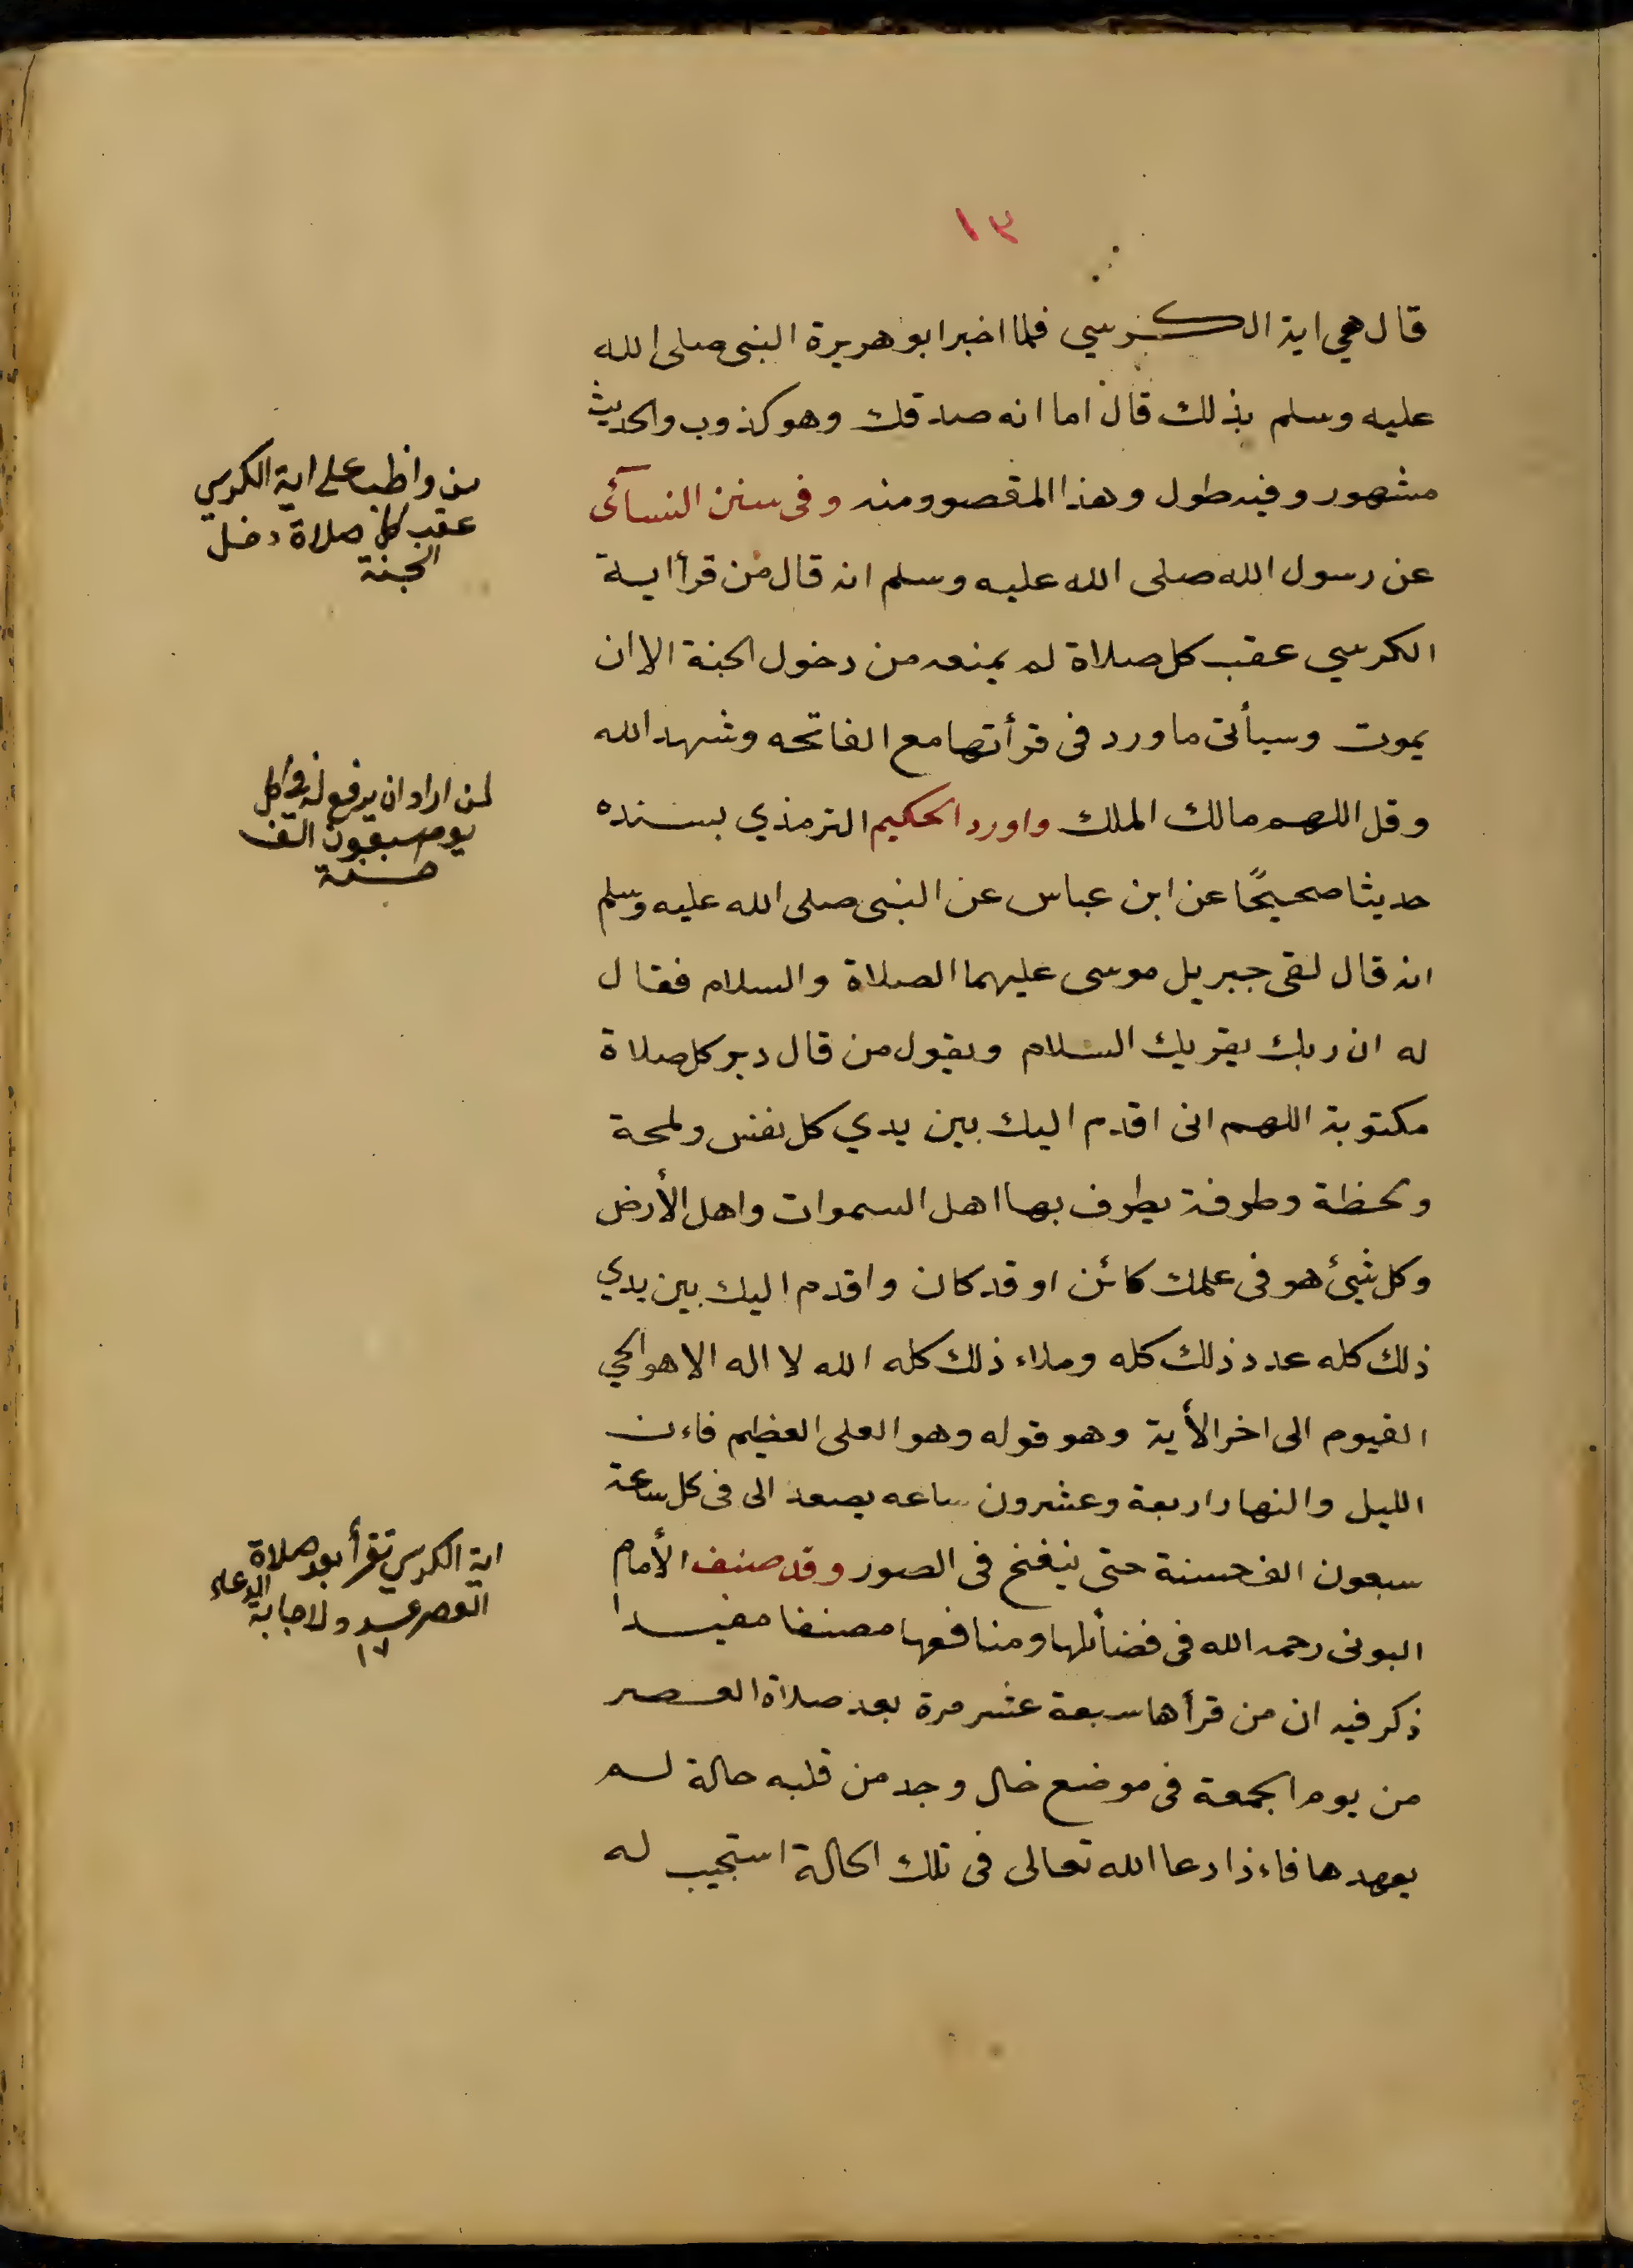 ١٣
قال هي اية الكرسي فلما اخبر ابو هريرة النبي صلى الله
عليه وسلم بذلك قال اما انه صدقك وهو كذوب والحديث
مشهور وفيه طول وهذا المقصوومنه وفى سنن النسآئى
عن رسول الله صلى الله عليه وسلم انه قال من قرأ اية
الكرسي عقب كل صلاة لم يمنعه من دخول الجنة الا ان
يموت وسيأتى ما ورد فى قرأتها مع الفاتحه وشهد الله
وقل اللهم مالك الملك واورد الحكيم الترمذي بسنده
حديثا صحيحًا عن ابن عباس عن النبى صلى الله عليه وسلم
انه قال لقى جبريل موسى عليهما الصلاة والسلام فقال
له ان ربك يقريك السلام ويقول من قال دبر كل صلاة
مكتوبة اللهم انى اقدم اليك بين يدي كل نفس ولمحة
ولحظة وطرفة يطرف بها اهل السموات واهل الأرض
وكل شيئ هو فى علمك كائن او قد كان واقدم اليك بين يدي
ذلك كله عدد ذلك كله وملاء ذلك كله الله لا اله الا هو الحي
القيوم الى اخر الأية وهو قوله وهو العلى العظيم فاءن
الليل والنهار اربعة وعشرون ساعه يصعد الى فى كل ساعة
سبعون الف حسنة حتى ينفخ فى الصور وقد صنف الأمام
البونى رحمه الله فى فضائلها ومنافعها مصنفا مفيدا
ذكر فيه ان من قرأها سبعة عشر مرة بعد صلاة العصر
من يوم الجمعة فى موضع خال وجد من قلبه حالة لم
يعهدها فاءذا دعا الله تعالى فى تلك الحالة استجيب له
من واظب على اية الكرسي
عقب كل صلاة دخل
الجنة
لمن اراد ان يرفع له فى كل
يوم سبعون الف
حسنة
اية الكرسي تقرأ بعد صلاة
العصر ولاجابة الدعاء
١٧